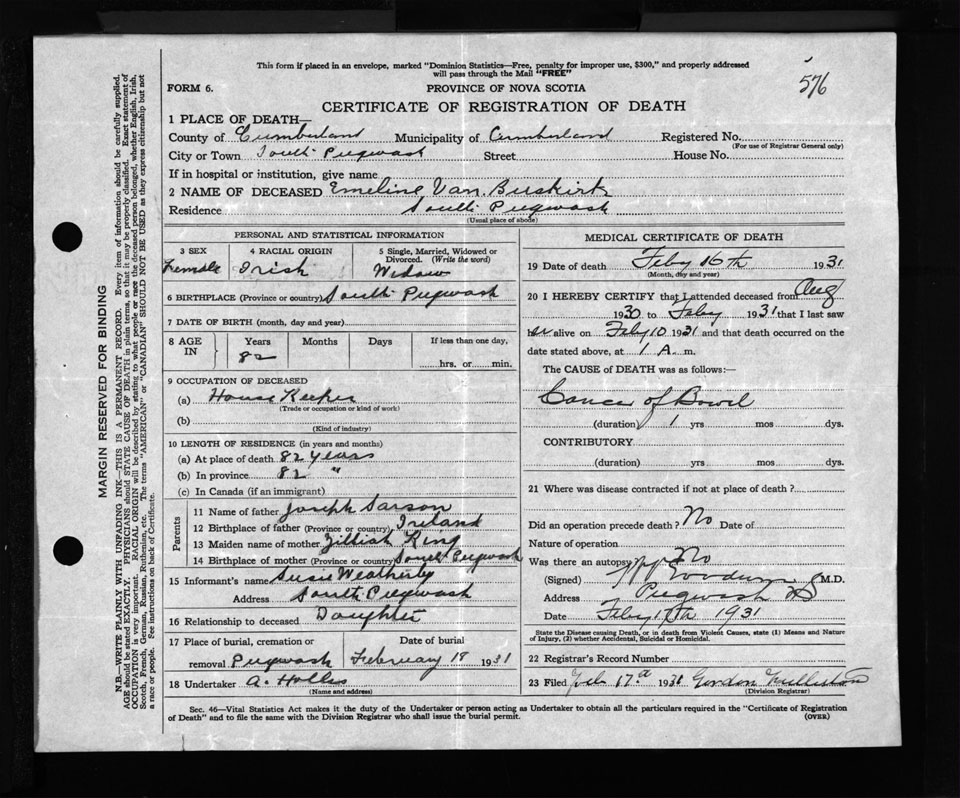 576
This form if placed in an envelope, marked "Dominion Statistics—Free, penalty for improper use, $300," and properly addressed
will pass through the Mail "FREE"
FORM 6.
PROVINCE OF NOVA SCOTIA
CERTIFICATE OF REGISTRATION OF DEATH
1 PLACE OF DEATH—
County of Cumberland Municipality of Cumberland Registered No.
(For use of Registrar General only)
City or Town South Pugwash Street House No.
If in hospital or institution, give name
2 NAME OF DECEASED Emeline Van Buskirk
Residence South Pugwash
(Usual place of abode)
PERSONAL AND STATISTICAL INFORMATION
3 SEX 4 RACIAL ORIGIN 5 Single, Married, Widowed or
Divorced. (Write the word)
Female Irish Widow
6 BIRTHPLACE (Province or country) South Pugwash
7 DATE OF BIRTH (month, day and year)
8 AGE IN Years Months Days If less than one day,
82 hrs. or min.
9 OCCUPATION OF DECEASED
(a) House Keeper
(Trade or occupation or kind of work)
(b)
(Kind of industry)
10 LENGTH OF RESIDENCE (in years and months)
(a) At place of death 82 years
(b) In province 82 "
(c) In Canada (if an immigrant)
Parents
11 Name of father Joseph Sarson
12 Birthplace of father (Province or country) Ireland
13 Maiden name of mother King
14 Birthplace of mother (Province or country) South Pugwash
15 Informant's name Susie Weatherby
Address South Pugwash
16 Relationship to deceased Daughter
17 Place of burial, cremation or Date of burial
removal Pugwash February 18 1931
18 Undertaker A. Hollis
(Name and address)
MEDICAL CERTIFICATE OF DEATH
19 Date of death Feby 16th 1931
(Month, day and year)
20 I HEREBY CERTIFY that I attended deceased from Aug
1930 to Feby 1931 that I last saw
her alive on Feby 10 1931 and that death occurred on the
date stated above, at 1 A. m.
The CAUSE of DEATH was as follows:—
Cancer of Bowel
(duration) 1 yrs mos dys.
CONTRIBUTORY
(duration) yrs. mos. dys.
21 Where was disease contracted if not at place of death?
Did an operation precede death? No Date of
Nature of operation
Was there an autopsy No
(Signed) M.D.
Address Pugwash NS
Date Feby 17th 1931
State the Disease causing Death, or in death from Violent Causes, state (1) Means and Nature
of Injury, (2) whether Accidental, Suicidal or Homicidal.
22 Registrar's Record Number
23 Filed Feb 17th 1931 Gordon
(Division Registrar)
Sec. 46—Vital Statistics Act makes it the duty of the Undertaker or person acting as Undertaker to obtain all the particulars required in the "Certificate of Registration
of Death" and to file the same with the Division Registrar who shall issue the burial permit.
(OVER)
MARGIN RESERVED FOR BINDING
N.B.—WRITE PLAINLY WITH UNFADING INK—THIS IS A PERMANENT RECORD. Every item of information should be carefully supplied.
AGE should be stated EXACTLY. PHYSICIANS should STATE CAUSE OF DEATH in plain terms, so that it may be properly classified. Exact statement of
OCCUPATION is very important. RACIAL ORIGIN will be described by stating to what people or race the deceased person belonged, whether English, Irish,
Scotch, French, German, Russian, Ruthenian, etc. The terms "AMERICAN" or "CANADIAN" SHOULD NOT BE USED as they express citizenship but not
a race or people. See instructions on back of Certificate.